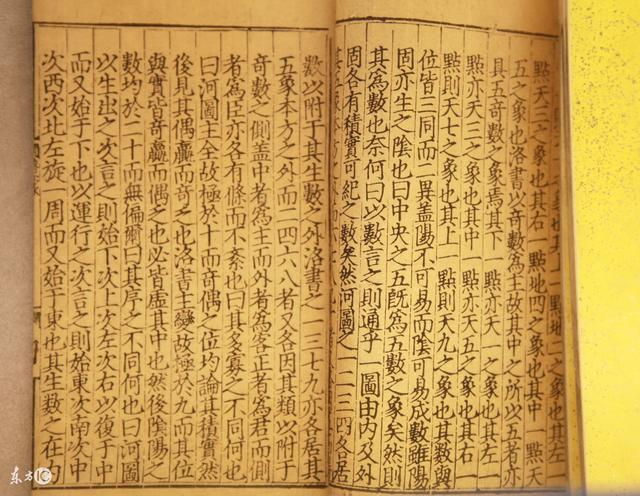 上一點地二之象也其左
點天三之象也其右一點地四之象也其中一點天
五之象也洛書以奇數為主故其中之所以五者亦
具五奇數之象焉其下一點亦天一之象也其左一
點亦天三之象也其中一點亦天五之象也其右一
點則天七之象也其上一點則天九之象也其數與
位皆三同而二異蓋陽不可易而陰可易成數雖陽
固亦生之陰也曰中央之五既為五數之象矣然則
其為數也奈何曰以數言之則通乎一圖由内及外
固各有積實可紀之數矣然河圖之一二三四各居
數以附于其生數之外洛書之一三七九亦各居其
五象本方之外而二四六八者又各因其類以附于
奇數之側蓋中者為主而外者為客正者為君而側
者為臣亦各有條而不紊也曰其多寡之不同何也
曰河圖主全故極於十而奇偶之位均論其積實然
後見其偶贏而奇乏也洛書主變故極於九而其位
與實皆奇贏而偶乏也必皆虛其中也然後陰陽之
數均於二十而無偏爾曰其序之不同何也曰河圖
以生出之次言之則始下次上次左次右以復于中
而又始于下也以運行之次言之則始東次南次中
次西次北左旋一周而又始于東也其生數之在内
東方IC